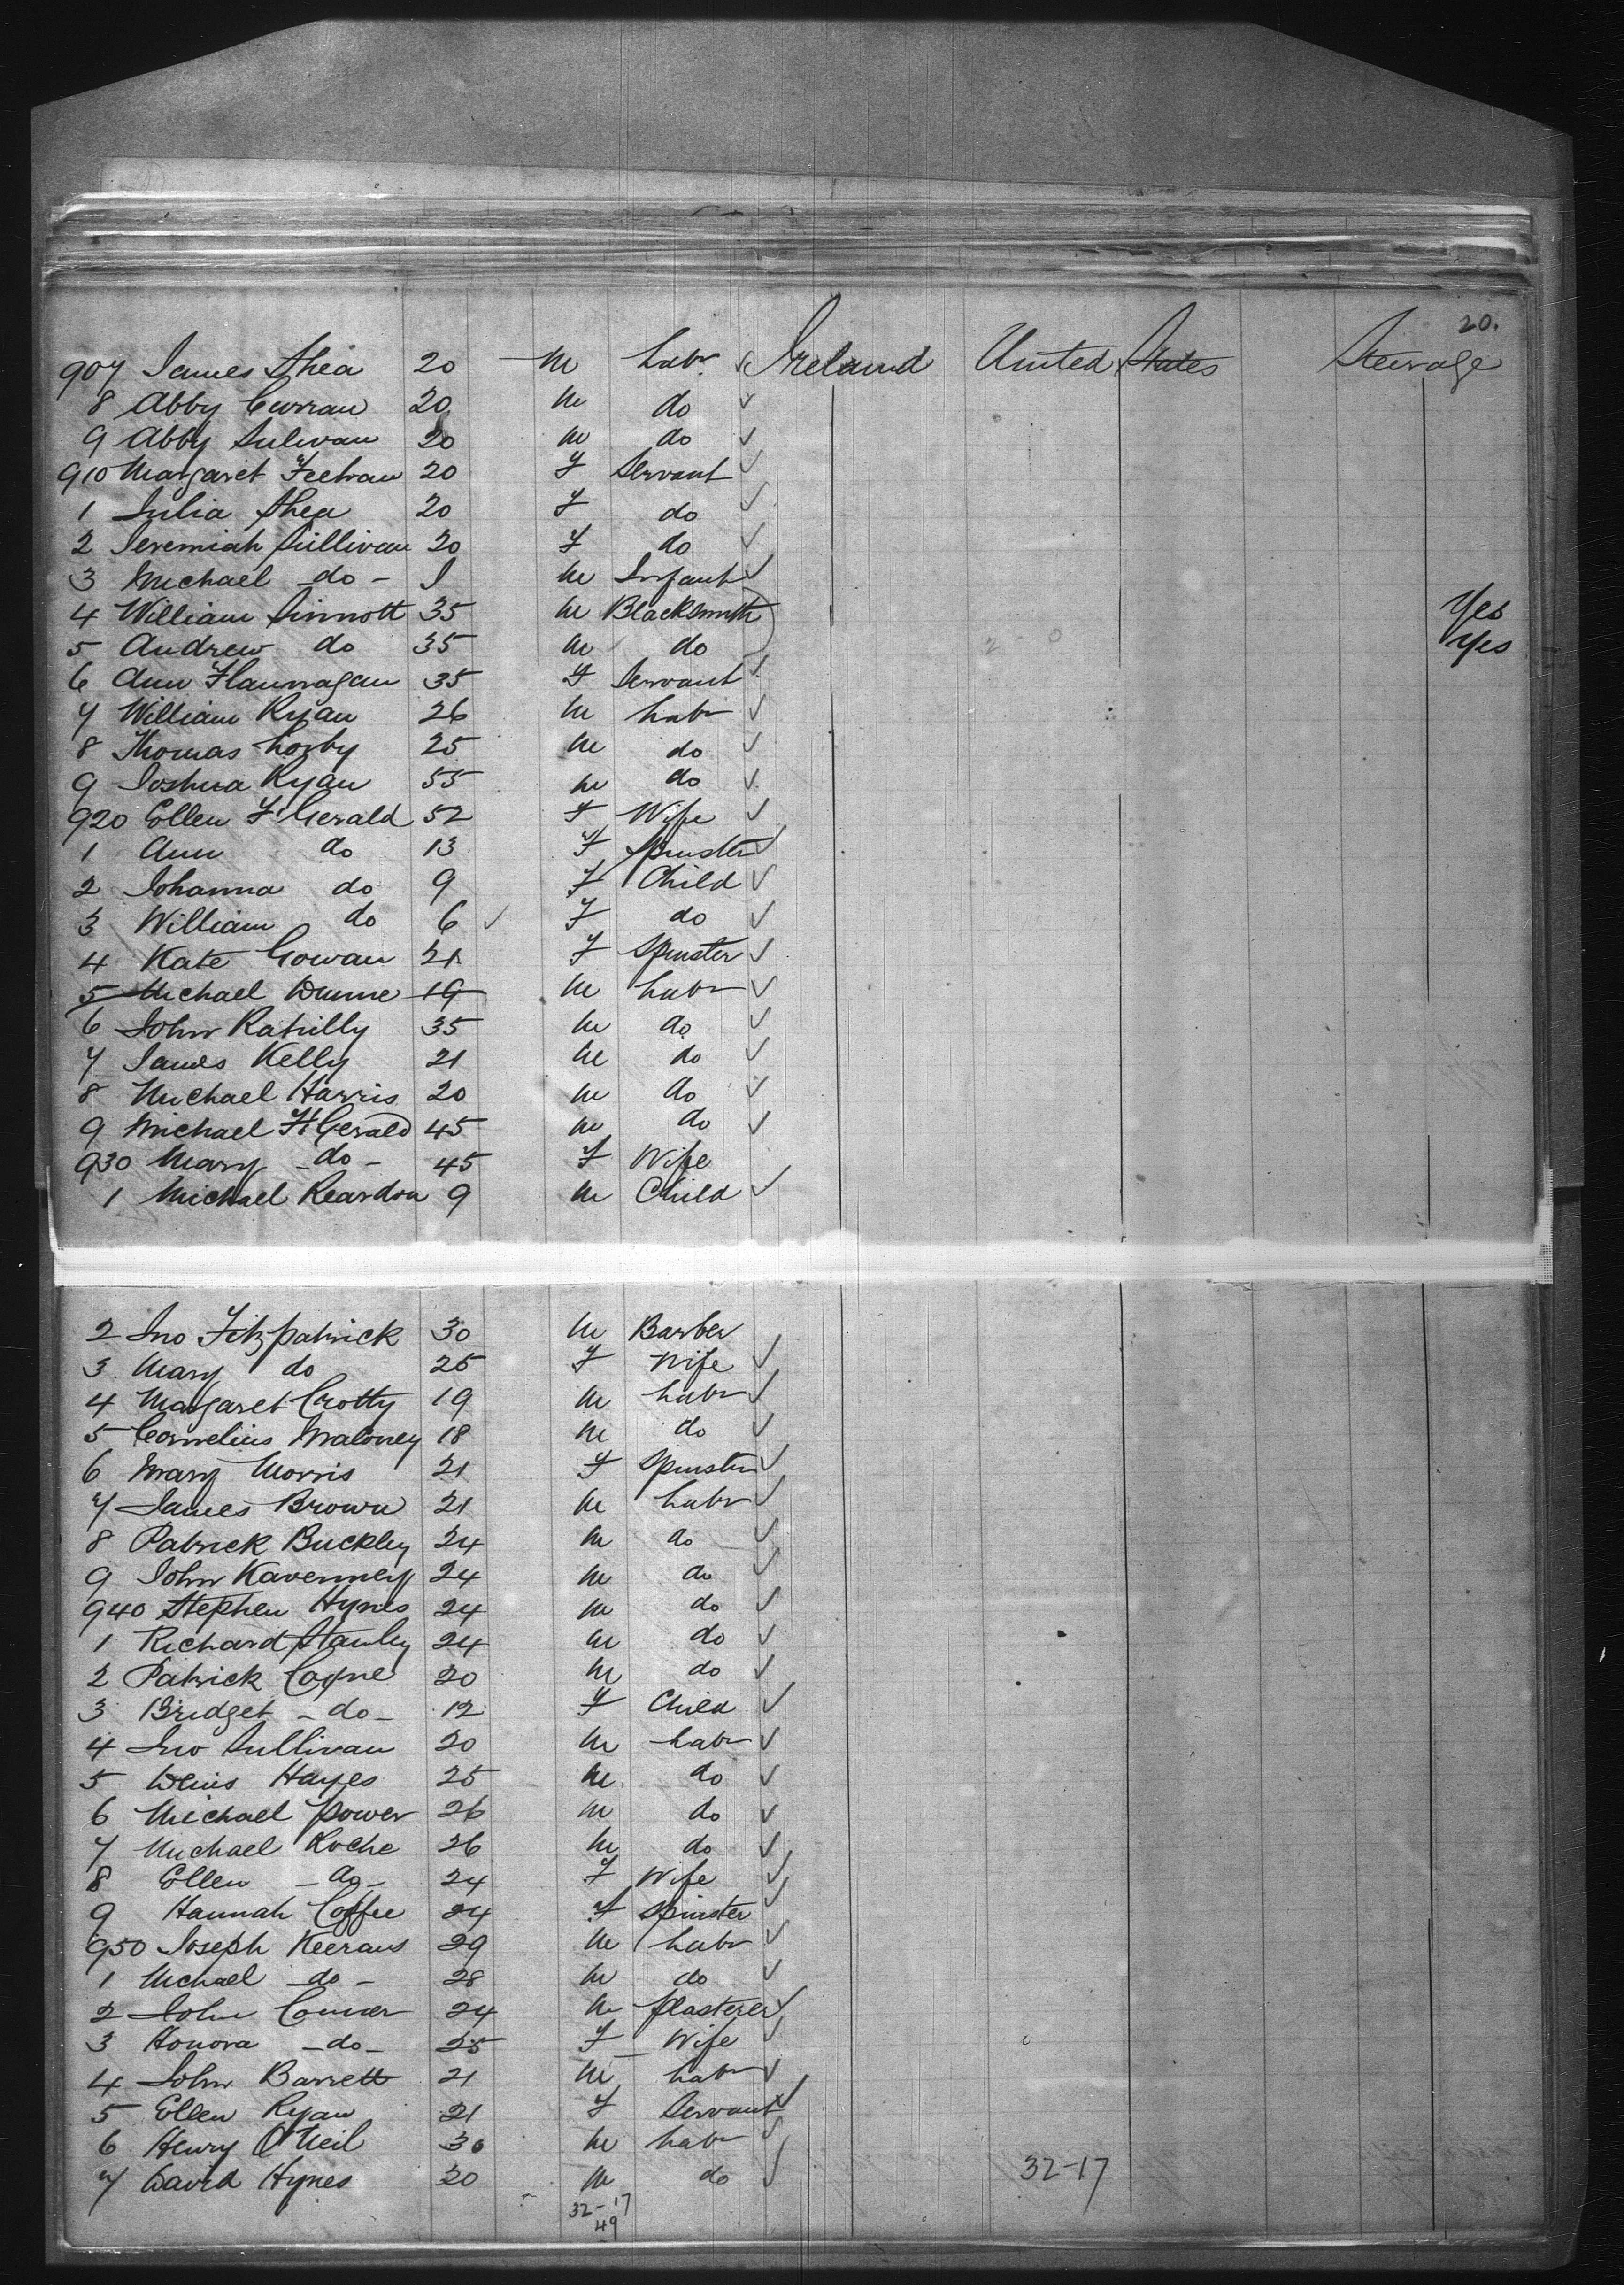 20.
907 James Shea 20 M Labr Ireland United States Steerage
8 Abby Curran 20 M do
9 Abby Sulivan 20 M do
910 Margaret Feehan 20 F Servant
1 Julia Shea 20 F do
2 Jeremiah Sullivan 20 F do
3 Michael -do- 1 M Infant
4 William Sinnott 35 M Blacksmith Yes
5 Andrew do 35 M do Yes
6 Ann Flannagan 35 F Servant
7 William Ryan 26 M Labr
8 Thomas 25 M do
9 Joshua Ryan 55 M do
920 Ellen FtGerald 52 F Wife
1 Ann do 13 F Spinster
2 Johanna do 9 F Child
3 William do 6 F do
4 Kate Gowan 21 F Spinster
5 Michael Dunne 19 M Labr
6 John Rahilly 35 M do
7 James Kelly 21 M do
8 Michael Harris 20 M do
9 Michael FtGerald 45 M do
930 Mary -do- 45 F Wife
1 Michael Reardon 9 M Child
2 Jno Fitzpatrick 30 M Barber
3 Mary do 25 F Wife
4 Margaret Crotty 19 M Labr
5 Cornelius Maloney 18 M do
6 Mary Morris 21 F Spinster
7 James Brown 21 M Labr
8 Patrick Buckley 24 M do
9 John Kavenney 24 M do
940 Stephen Hynes 24 M do
1 Richard Stanley 24 M do
2 Patrick Coyne 20 M do
3 Bridget -do- 12 F Child
4 Jno Sullivan 20 M Labr
5 Denis Hayes 25 M do
6 Michael Power 26 M do
7 Michael Roche 26 M do
8 Ellen -do- 24 F Wife
9 Hannah Coffee 24 F Spinster
950 Joseph Keerans 29 M Labr
1 Michael -do- 28 M do
2 John Connor 24 M Plasterer
3 Honora -do- 25 F Wife
4 John Barrett 21 M Labr
5 Ellen Ryan 21 F Servant
6 Henry O'Neil 30 M Labr
7 David Hynes 20 M do 32-17
32-17
49